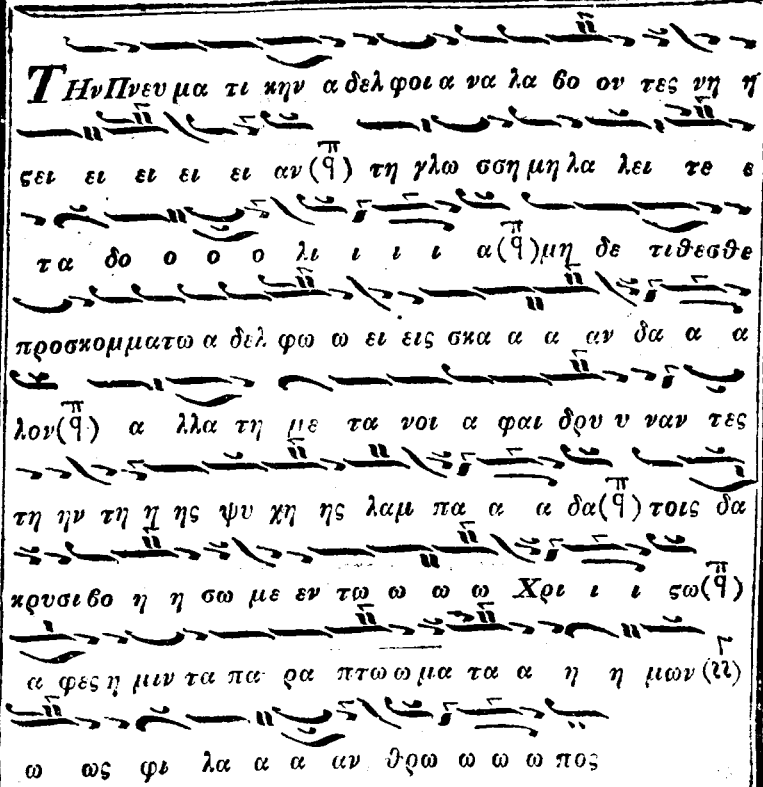 Την Πνευ μα τι κην α δελ φοι α να λα βο ον τες νη η
ςει ει ει ει ει αν (π q) τη γλω σση μη λα λει τε ε
τα δο ο ο ο λι ι ι ι α (π q) μη δε τι θεσθε
προσκομματω α δελ φω ω ει εις σκα α α αν δα α α
λον (π q) α λλα τη με τα νοι α φαι δρυ υ ναν τες
τη ην τη η ης ψυ χη ης λαμ πα α α δα (π q) τοις δα
κρυσι βο η η σω με εν τω ω ω ω Χρι ι ι ςω (π q)
α φες η μιν τα πα ρα πτω ω μα τα α η η μων
ω ως φι λα α α αν θρω ω ω ω πος